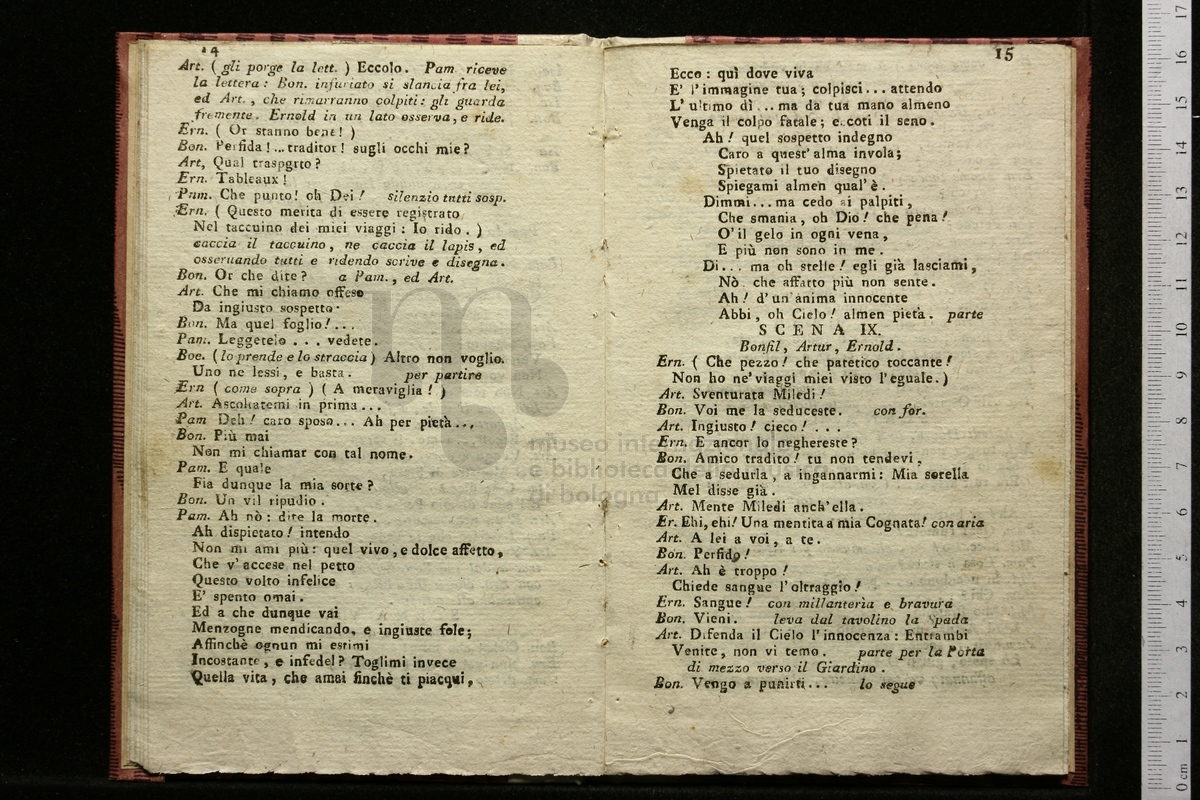 14
Art. ( gli porge la lett. ) Eccolo. Pam riceve
la lettera: Bon. infuriato si slancia fra lei,
ed Art., che rimarranno colpiti: gli guarda
fremente. Ernold in un lato osserva, e ride.
Ern. ( Or stanno bene! )
Bon. Perfida!... traditor! sugli occhi mie?
Art, Qual trasporto?
Ern. Tableaux!
Pam. Che punto! oh Dei! silenzio tutti sosp.
Ern. ( Questo merita di essere registrato
Nel taccuino dei miei viaggi: Io rido. )
caccia il taccuino, ne caccia il lapis, ed
osservando tutti e ridendo scrive e disegna.
Bon. Or che dite? a Pam., ed Art.
Art. Che mi chiamo offeso
Da ingiusto sospetto.
Bon. Ma quel foglio!...
Pam. Leggetelo ... vedete.
Boe. ( lo prende e lo straccia ) Altro non voglio.
Uno ne lessi, e basta. per partire
Ern ( come sopra ) ( A meraviglia! )
Art. Ascoltatemi in prima...
Pam Deh! caro sposo... Ah per pietà...
Bon. Più mai
Non mi chiamar con tal nome.
Pam. E quale
Fia dunque la mia sorte?
Bon. Un vil ripudio.
Pam. Ah nò: dite la morte.
Ah dispietato! intendo
Non mi ami più: quel vivo, e dolce affetto,
Che v'accese nel petto
Questo volto infelice
E' spento omai.
Ed a che dunque vai
Menzogne mendicando, e ingiuste fole;
Affinchè ognun mi estimi
Incostante, e infedel? Toglimi invece
Quella vita, che amai finchè ti piacqui,
15
Ecco: quì dove viva
E' l'immagine tua; colpisci... attendo
L' ultimo dì ... ma da tua mano almeno
Venga il colpo fatale; eccoti il seno.
Ah! quel sospetto indegno
Caro a quest' alma invola;
Spietato il tuo disegno
Spiegami almen qual'è.
Dimmi... ma cedo ai palpiti,
Che smania, oh Dio! che pena!
O' il gelo in ogni vena,
E più non sono in me.
Di... ma oh stelle! egli già lasciami,
Nò che affatto più non sente.
Ah! d'un'anima innocente
Abbi, oh Cielo! almen pietà. parte
SCENA IX.
Bonfil, Artur, Ernold.
Ern. ( Che pezzo! che patetico toccante!
Non ho ne' viaggi miei visto l'eguale.)
Art. Sventurata Miledi!
Bon. Voi me la seduceste. con for.
Art. Ingiusto! cieco! ...
Ern. E ancor lo neghereste?
Bon. Amico tradito! tu non tendevi,
Che a sedurla, a ingannarmi: Mia sorella
Mel disse già.
Art. Mente Miledi anch'ella.
Er. Ehi, ehi! Una mentita a mia Cognata! con aria
Art. A lei a voi, a te.
Bon. Perfido!
Art. Ah è troppo!
Chiede sangue l'oltraggio!
Ern. Sangue! con millanteria e bravura
Bon. Vieni. leva dal tavolino la Spada
Art. Difenda il Cielo l'innocenza: Entrambi
Venite, non vi temo. parte per la Porta
di mezzo verso il Giardino.
Bon. Vengo a punirti... lo segue
museo internazionale
e biblioteca della musica
di bologna
0 cm 1 2 3 4 5 6 7 8 9 10 11 12 13 14 15 16 17